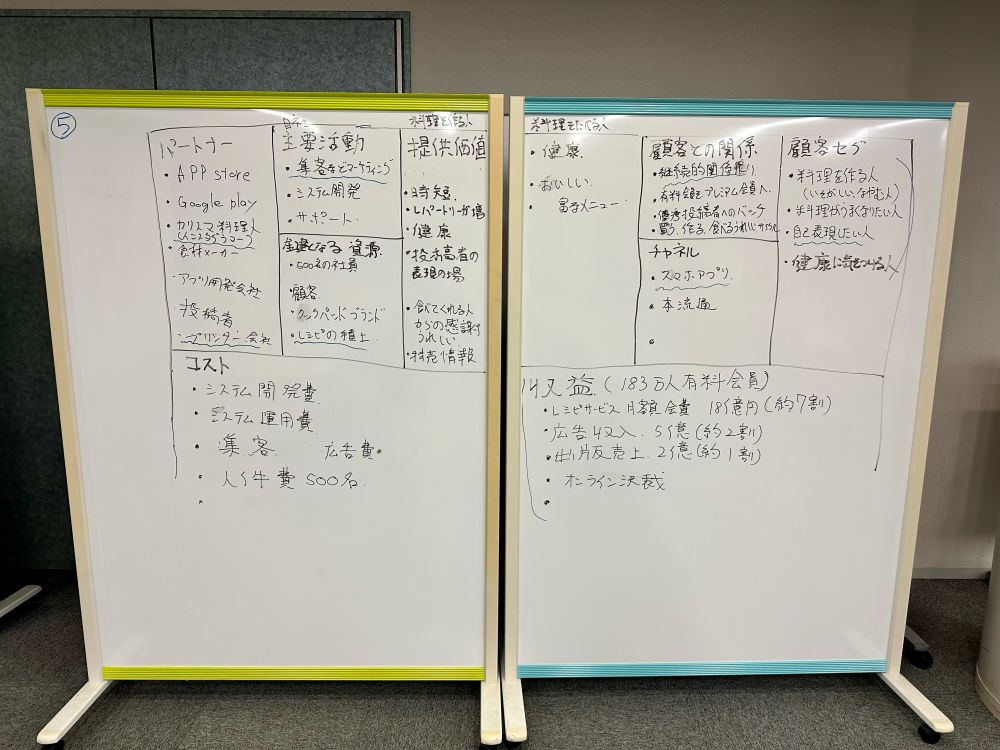 ⑤
パートナー
・APP store
・Google play
・カリスマ料理人
(インスタグラマー)
・食材メーカー
・アプリ開発会社
投稿者
主要活動
・集客などマーケティング
・システム開発
・サポート
鍵となる資源
・500名の社員
・顧客
・クックパッドブランド
・レシピの積上
※料理を作る人
提供価値
・時短
・レパートリーが増
・健康
・投稿者の
表現の場
・食べてくれる人
からの感謝が
うれしい
・特売情報
コスト
・システム開発費
・システム運用費
・集客 広告費
・人件費 500名
※料理をたべる人
・健康
・おいしい
・メニュー
顧客との関係
・継続的関係
・有料会員 プレミアム会員へ
・優秀投稿者へのバッチ
・買う、作る、食べる うれしい
チャネル
・スマホアプリ
・本流通
顧客セグ
・料理を作る人
・料理がうまくなりたい人
・自己表現したい人
・健康に気をつける人
収益(183万人有料会員)
・レシピサービス 月額会費 18億円(約7割)
・広告収入 5億(約2割)
・出版売上 2億(約1割)
・オンライン決裁